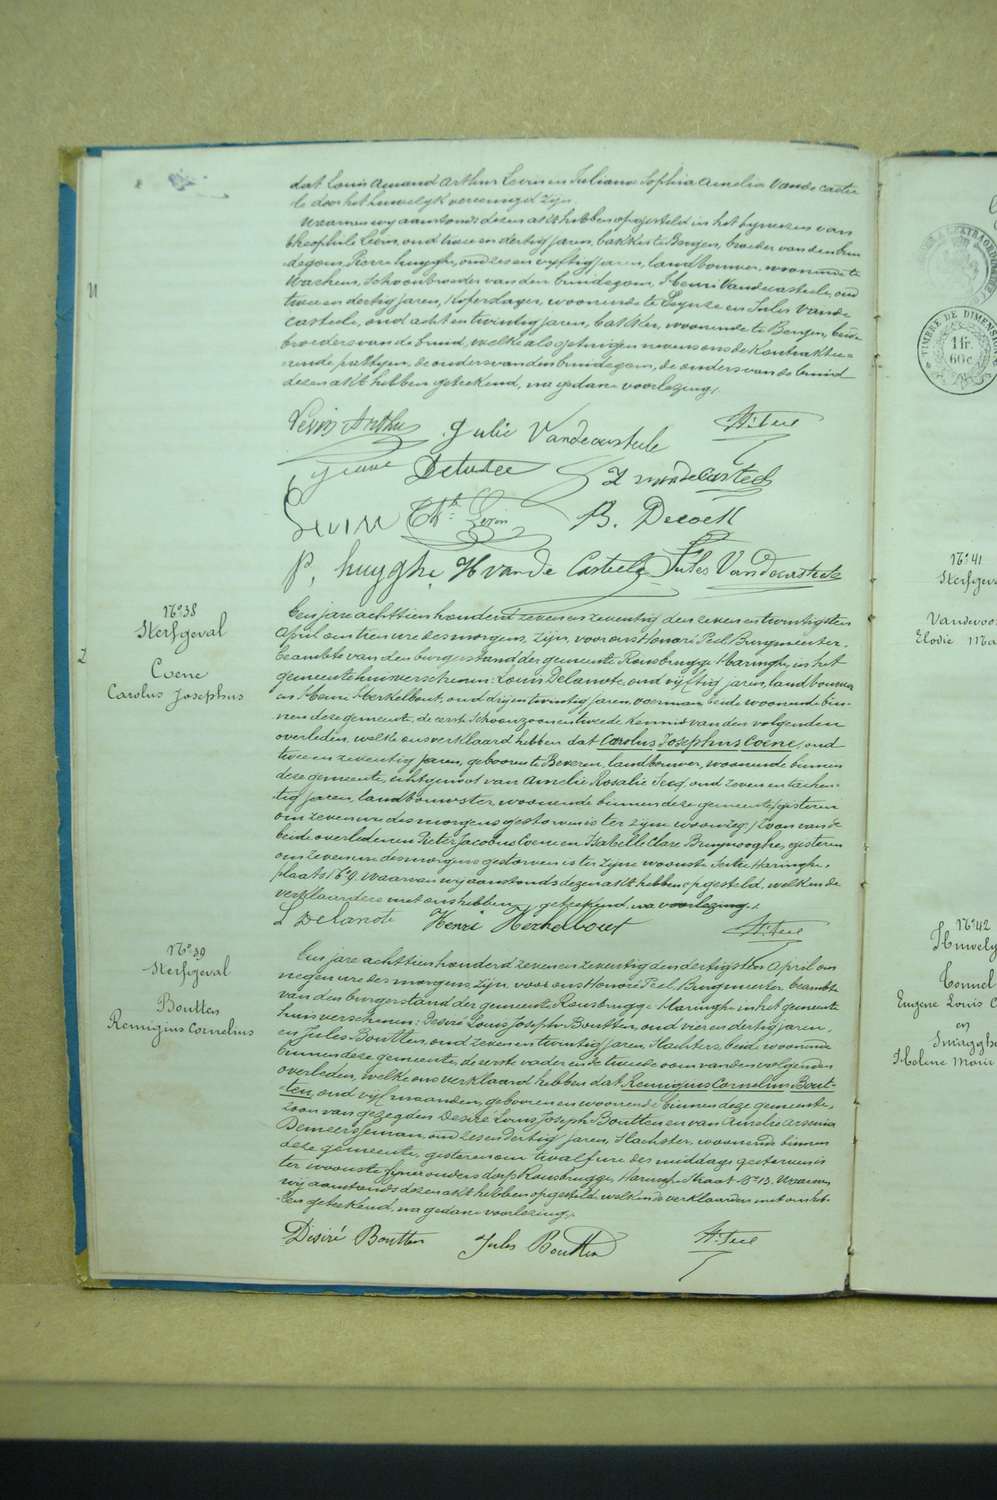 dat Louis Amand Arthur Leerin en Juliana Sophia Amelia Vandecastee
le door het huwelijk vereenigd zijn.
Waarvan wij aanstonds dezen akt hebben opgesteld in het bijwezen van
Theophile Leerin, oud twee en dertig jaren, bakker te Bergen, broeder van den brui
degom, Pierre Huyghe, oud zes en vyftig jaren, landbouwer, woonende te
schoonbroeder van den bruidegom, Henri Vandecasteele, oud
twee en dertig jaren, woonende te en Jules Vande
casteele, oud acht en twintig jaren, bakker, woonende te Bergen, beide
broeders van de bruid, welke als getuigen nevens ons de kontrakte-
rende partyen, de ouders van den bruidegom, de ouders van de bruid
dezen akt hebben geteekend, na gedane voorlezing.
Arthur Julie Vandecasteele H. Peel
Vandecasteele
Th. B. Decock
P. huyghe H vande Casteele Jules Vandecasteele
N° 38
Sterfgeval
Coene
Carolus Josephus
Een jare achttien honderd zeven en zeventig den zeven en twintigsten
April om tien ure des morgens, zijn, voor ons Honoré Peel Burgmeester,
beambte van den burgerstand der gemeente Rousbrugge Haringhe, in het
gemeentehuis verschenen: Louis Delanote, oud vijftig jaren, landbouwer
en Henri Herkelbout, oud drij en twintig jaren, voerman, beide woonende bin-
nen deze gemeente, de eerste schoonzoon en tweede kennis van den volgenden
overleden, welke ons verklaard hebben dat Carolus Josephus Coene, oud
twee en zeventig jaren, geboren te Beveren, landbouwer, woonende binnen
deze gemeente, echtgenoot van Amelie Rosalie oud zeven en tachen-
tig jaren, landbouwster, woonende binnen deze gemeente, gisteren
om zeven ure des morgens gestorven is ter zijne woonste, Zoon van de
beide overledenen Pieter Jacobus Coene en Isabelle Clare Bruynooghe, gisteren
om zeven ure des morgens gestorven is ter zijne woonste Haringhe-
plaats N° 9. Waarvan wij aanstonds dezen akt hebben opgesteld, welken de
verklaarders met ons hebben geteekend, na voorlezing.
L Delanote Henri Herkelbout H. Peel
N° 39
Sterfgeval
Boutten
Remigius Cornelius
Een jare achttien honderd zeven en zeventig den dertigsten April om
negen ure des morgens, zijn, voor ons Honoré Peel, Burgmeester beambte
van den burgerstand der gemeente Rousbrugge Haringhe in het gemeente
huis verschenen: Desiré Louis Joseph Boutten, oud vier en dertig jaren,
en Jules Boutten, oud zeven en twintig jaren, slachters, beide woonende
binnen deze gemeente, de eerste vader en de tweede oom van den volgenden
overleden, welke ons verklaard hebben dat Remigius Cornelius Bout-
ten, oud vijf maanden, geboren en woonende binnen deze gemeente,
zoon van gezegden Desiré Louis Joseph Boutten en van Amelie Arsenia
Demeersseman, oud zes en dertig jaren, slachster, woonende binnen
deze gemeente, gisteren om twaalf ure des middags gestorven is
ter woonste zyner ouders dorp Rousbrugge Haringhe Straat N° 13. Waarvan
wij aanstonds dezen akt hebben opgesteld welken de verklaarders met ons heb-
ben geteekend, na gedane voorlezing.
Désiré Boutten Jules Boutten H. Peel
TIMBRE DE DIMENSION
1 fr.
60 c
N° 41
Sterfgeva
Vandewoo
Elodie Ma
N° 42
Huwely
Connel
Eugene Louis C
en
Swaegh
Helene Marie